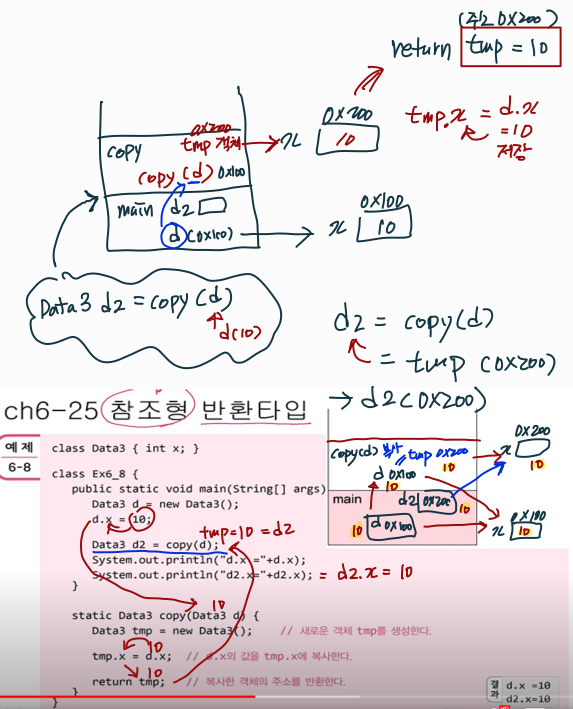 (주소 0x200)
return tmp = 10
0x200
tmp 객체
copy
copy(d) 0x100
main d2
d (0x100)
x
0x200
10
tmp.x = d.x
= 10
저장
x
0x100
10
Data3 d2 = copy(d)
d(10)
d2 = copy(d)
= tmp (0x200)
→ d2(0x200)
ch6-25 참조형 반환타입
예제
6-8
class Data3 { int x; }
class Ex6_8 {
public static void main(String[] args)
Data3 d = new Data3();
d.x = 10;
tmp=10 = d2
Data3 d2 = copy(d);
System.out.println("d.x ="+d.x);
System.out.println("d2.x="+d2.x); = d2.x = 10
}
10
static Data3 copy(Data3 d) {
Data3 tmp = new Data3(); // 새로운 객체 tmp를 생성한다.
10
tmp.x = d.x; // d.x의 값을 tmp.x에 복사한다.
10
return tmp; // 복사한 객체의 주소를 반환한다.
}
}
copy(d) 복사 tmp 0x200
10
d 0x100
10
main d2 0x200 10
10 d 0x100
0x200
x
10
0x100
x 10
결과
d.x =10
d2.x=10